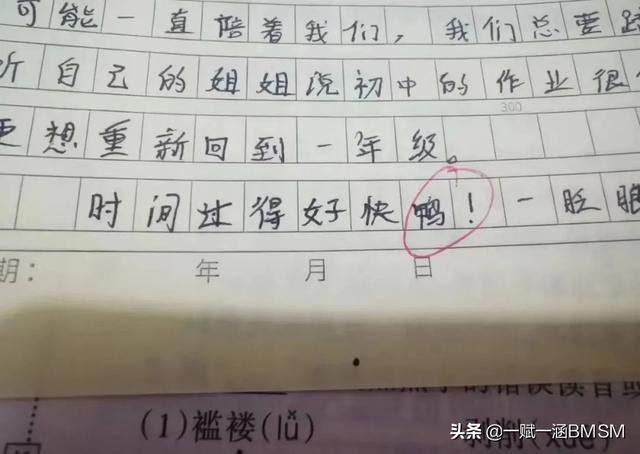 可能一直陪着我们，我们总要
听自己的姐姐说初中的作业很
300
更想重新回到一年级。
时间过得好快鸭！一眨眼
期： 年 月 日
(1)褴褛(lǚ)
剥削(xuē)
头条 @一赋一涵BMSM